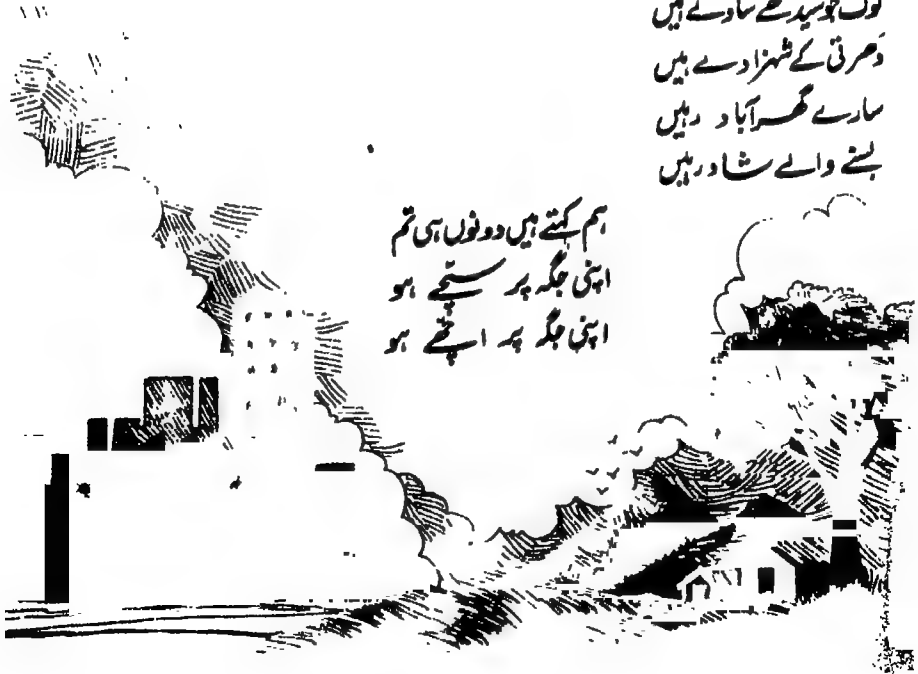 لوگ جو سیدھے سادے ہیں
دَھرتی کے شہزادے ہیں
سارے گھر آباد رہیں
بسنے والے شاد رہیں
ہم کہتے ہیں دونوں ہی تم
اپنی جگہ پر سچّے ہو
اپنی جگہ پر اچّھے ہو